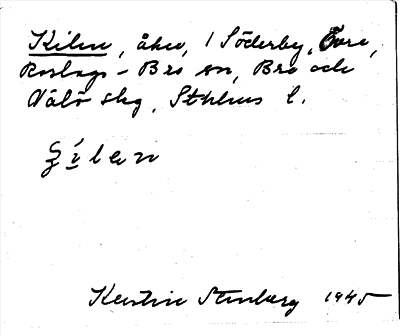 Kilen, åker, 1 Söderby, Övre,
Roslags-Bro sn, Bro och
Vätö skg, Sthlms l.
ç̌ìlen
Kerstin Stenberg 1945